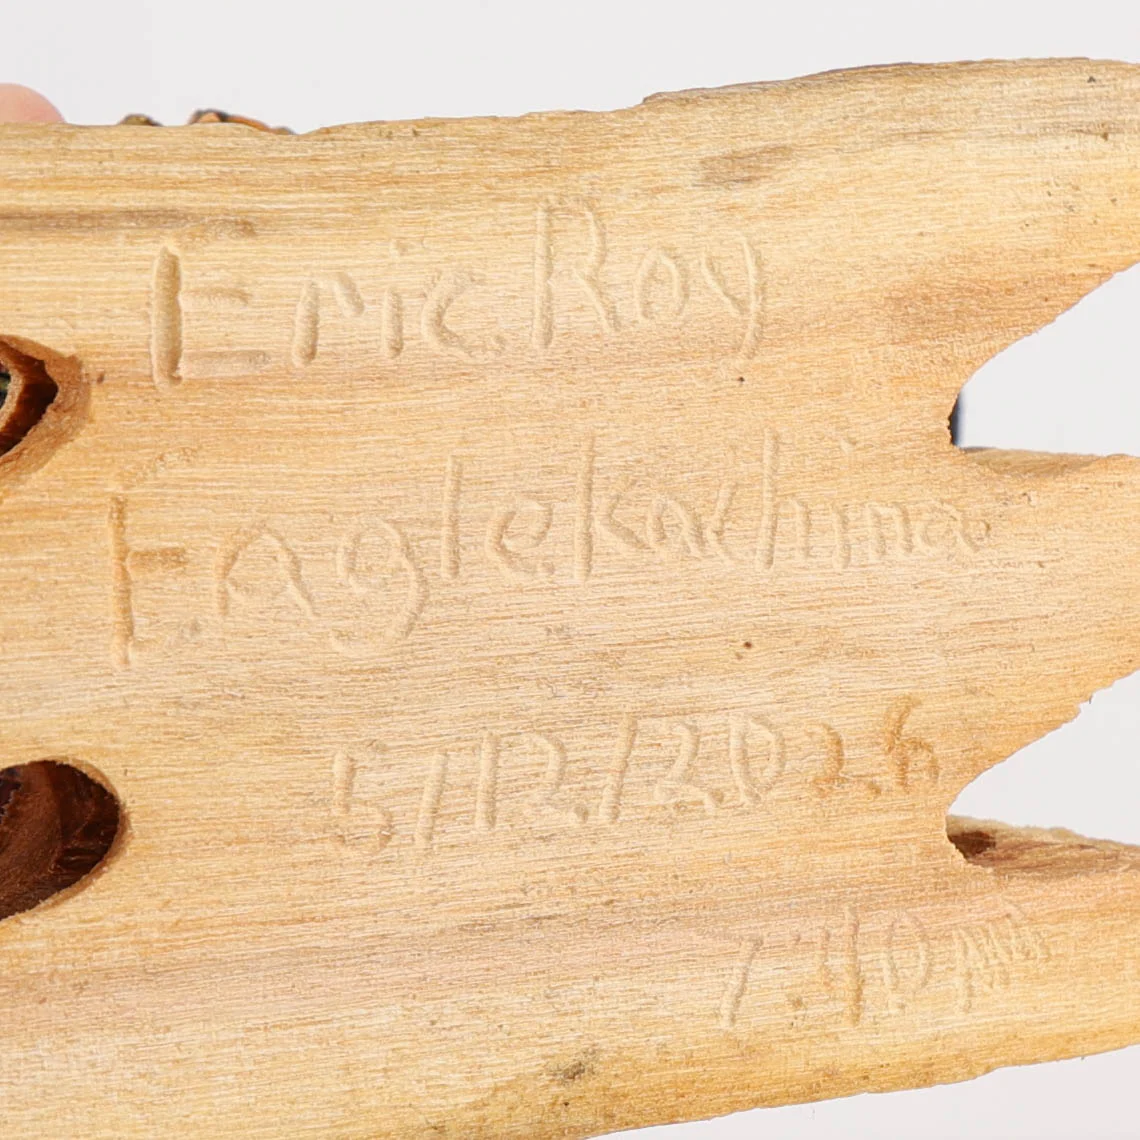 Eric Roy
Eagle Kachina
5/12/2026
7:40 PM